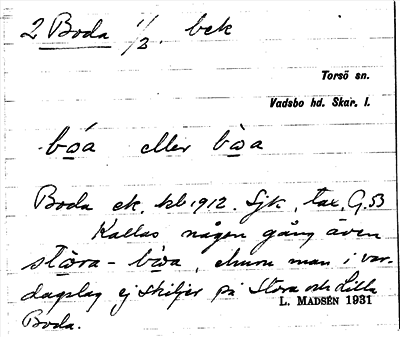 2 Boda 1/2. bek
Torsö sn.
Vadsbo hd. Skar. l.
bo̲a eller bo̲a
Boda ek. kb 1912. Sjk, tax, G. 53
Kallas någon gång även
stora-boa, ehuru man i var-
dagslag ej skiljer på Stora och Lilla
L. MADSÉN 1931
Boda.